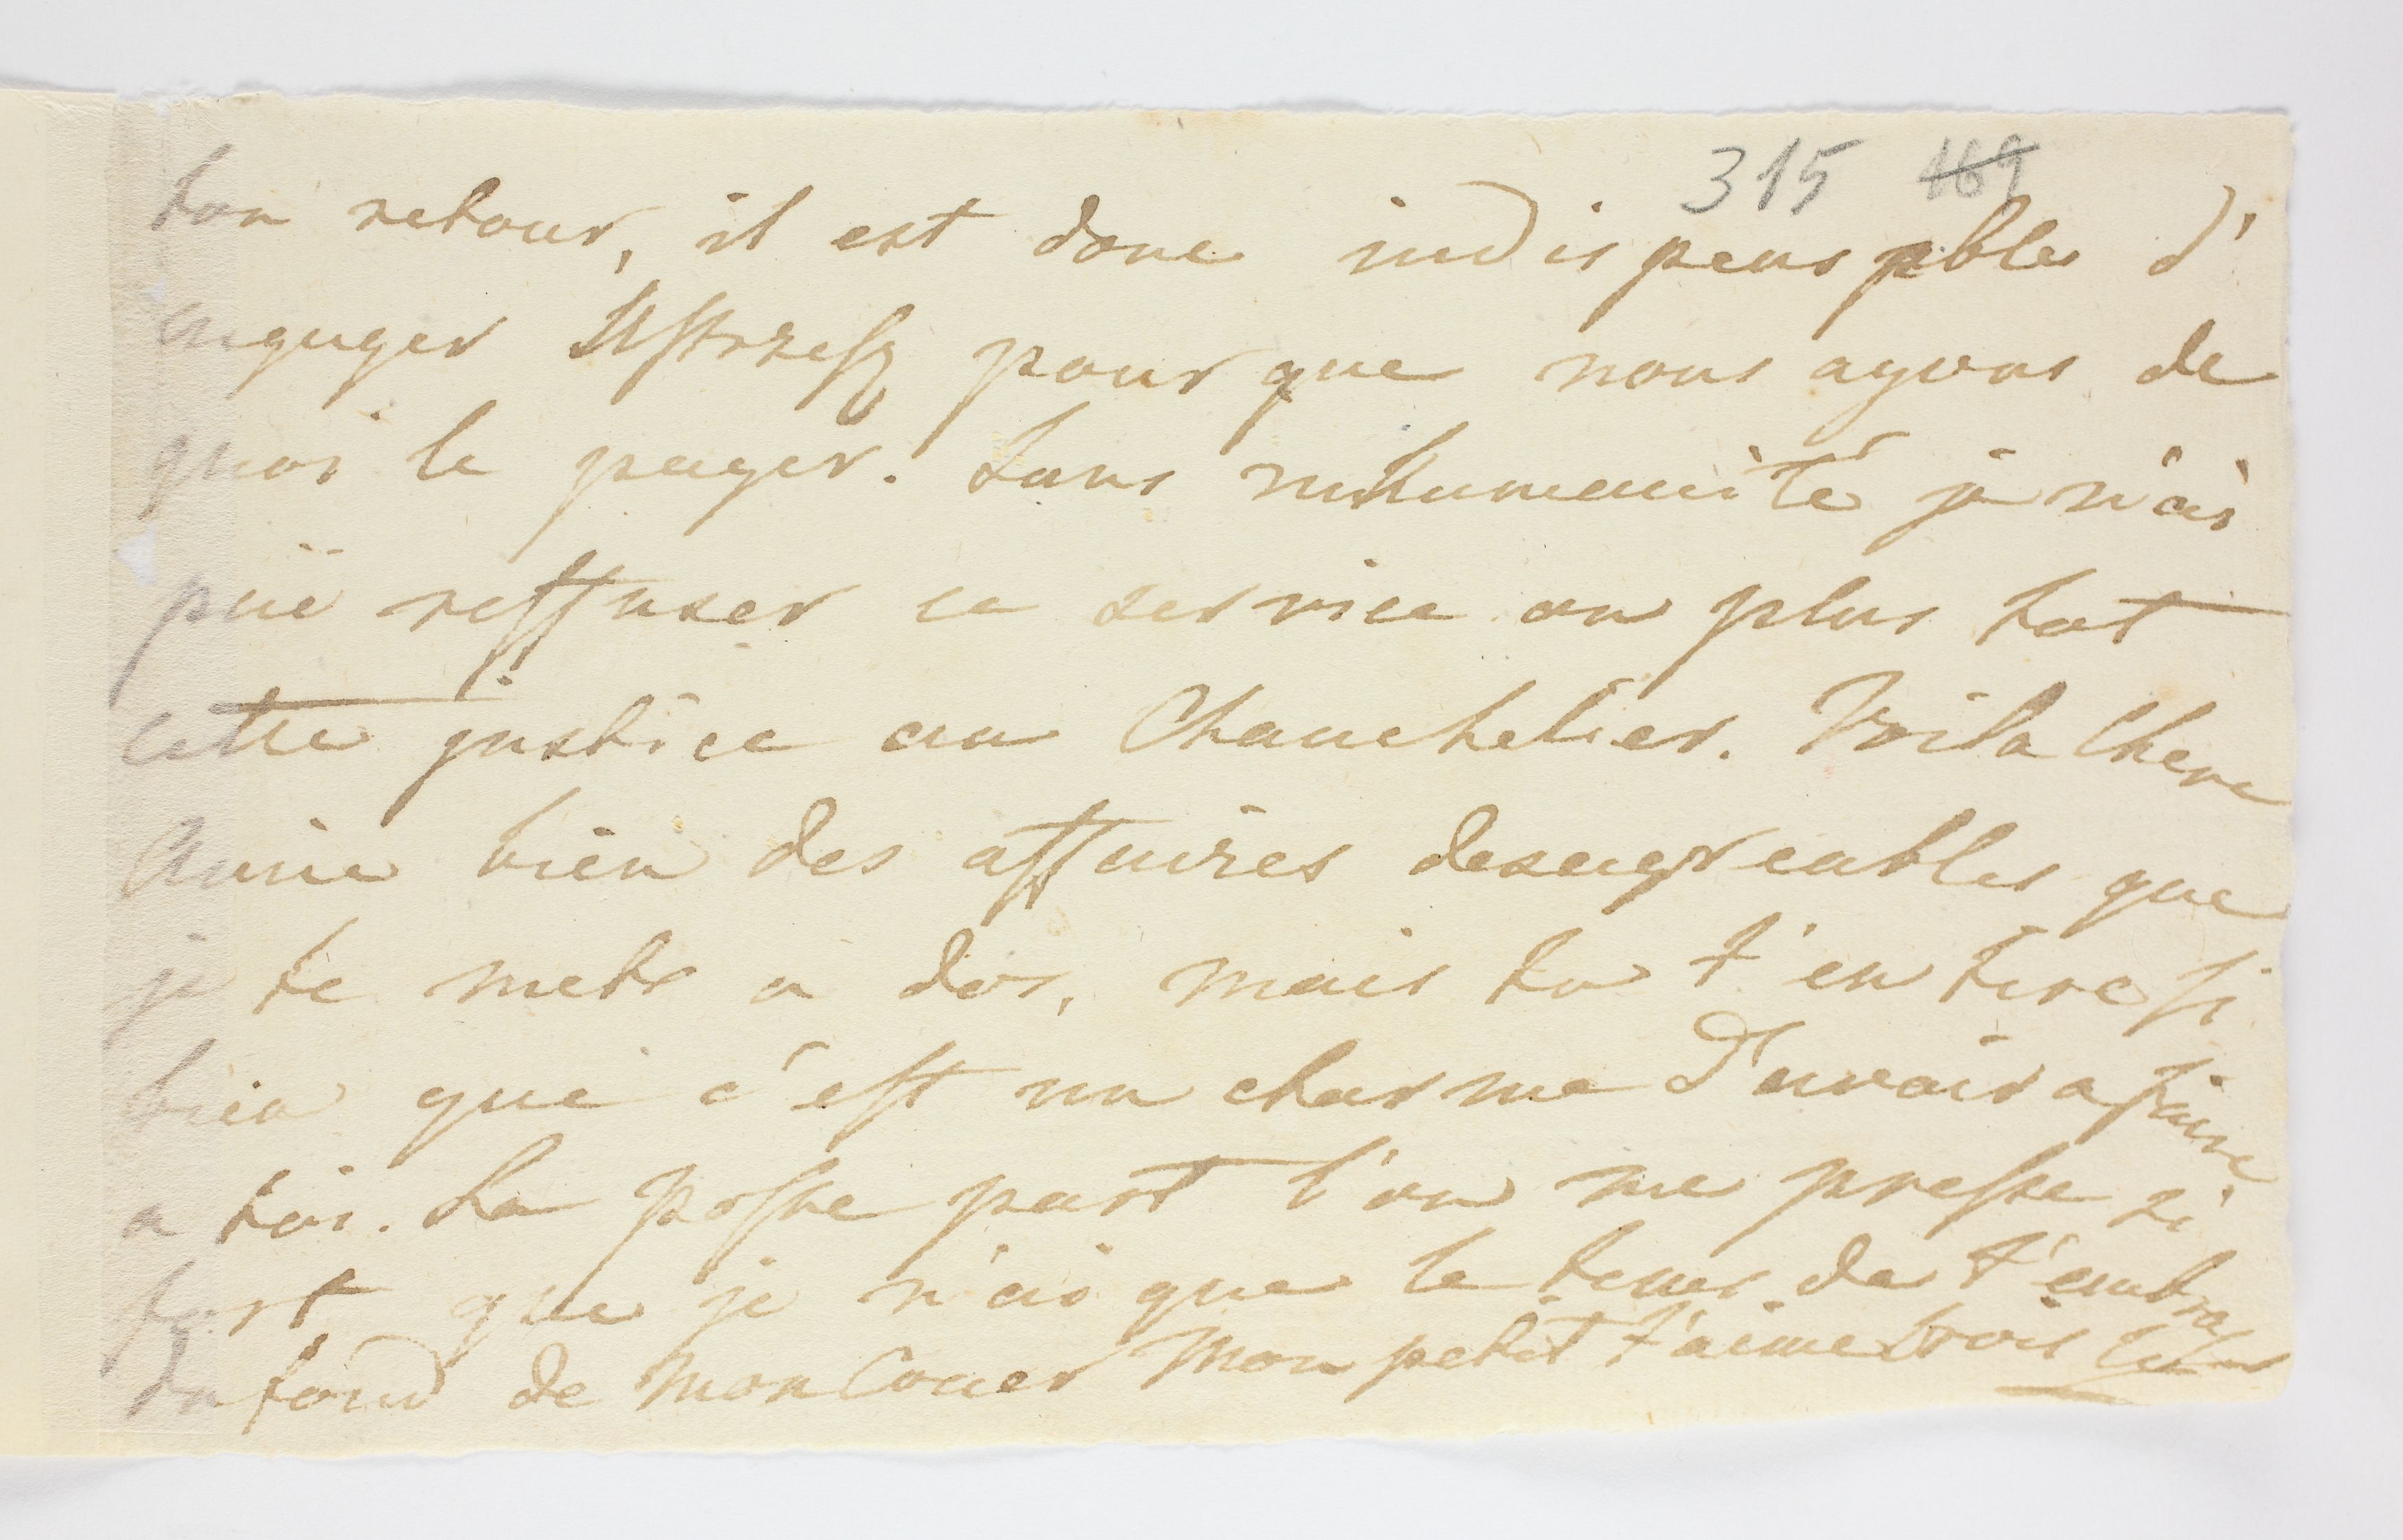 315 169
ton retour, il est donc indispensable d'
enguger Ustrzesz pourque nous ayons de
quoi le payer. Sans inhumanité je n'ai
puë reffuser ce service ou plus tot
cette justice au Chanchelier. Voila Chere
Amie bien des affaires desagreables que
je te mets a dos, mais tu t'en tire si
bien que c'est un charme d'avoir a faire
a toi. La poste part l'on me presse si
fort que je n'ai que le tems de t'embrasser
du fond de mon Coeur Mon petit t'aime